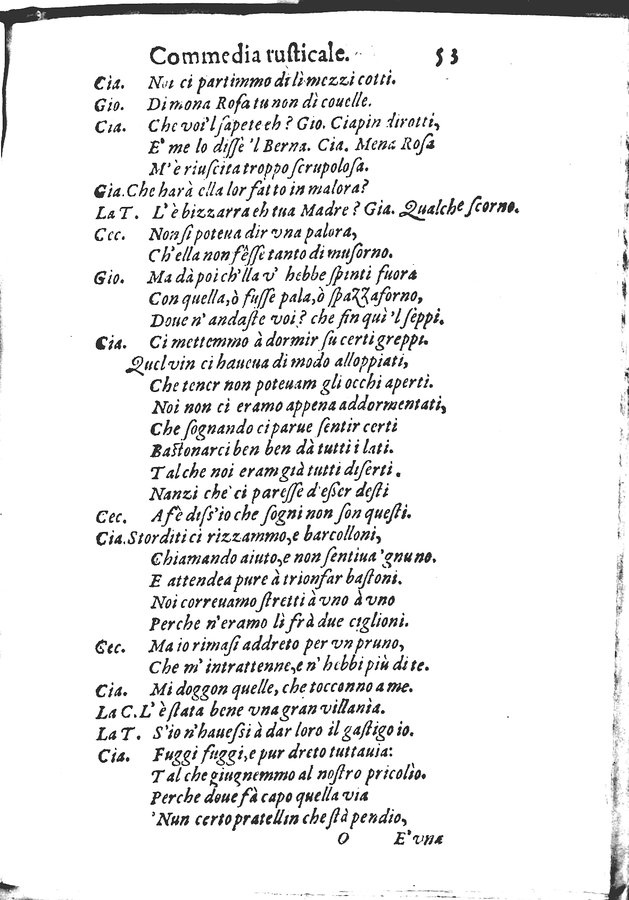 Commedia rusticale. 53
Cia. Noi ci partimmo dì lì mezzi cotti.
Gio. Di mona Rosa tu non dì couelle.
Cia. Che voi'l sapete eh? Gio. Ciapin dirotti,
E' me lo disse 'l Berna. Cia. Mena Rosa
M'è riuscita troppo scrupolosa.
Gia. Che harà ella lor fatto in malora?
La T. L'è bizzarra eh tua Madre? Gia. Qualche scorno.
Cec. Non si poteua dir vna palora,
Ch'ella non fêsse tanto di musorno.
Gio. Ma dà poi ch'lla v' hebbe spinti fuora
Con quella, ò fusse pala, ò spazzaforno,
Doue n' andaste voi? che fin quì 'l seppi.
Cia. Ci mettemmo à dormir su certi greppi.
Quel vin ci haueua di modo alloppiati,
Che tener non poteuam gli occhi aperti.
Noi non ci eramo appena addormentati,
Che sognando ci parue sentir certi
Bastonarci ben ben dà tutti i lati.
Tal che noi eram già tutti diserti.
Nanzi che ci paresse d'esser desti
Cec. A fè diss'io che sogni non son questi.
Cia. Storditi ci rizzammo, e barcolloni,
Chiamando aiuto, e non sentiua 'gnuno.
E attendea pure à trionfar bastoni.
Noi correuamo stretti à vno à vno
Perche n'eramo lì frà due ciglioni.
Cec. Ma io rimasi addreto per vn pruno,
Che m' intrattenne, e n' hebbi più di te.
Cia. Mi doggon quelle, che tocconno a me.
La C. L' è stata bene vna gran villania.
La T. S'io n'hauessi à dar loro il gastigo io.
Cia. Fuggi fuggi, e pur dreto tuttauia:
Tal che giugnemmo al nostro pricolìo.
Perche doue fà capo quella via
'Nun certo pratellin che stà pendio,
O E' vna